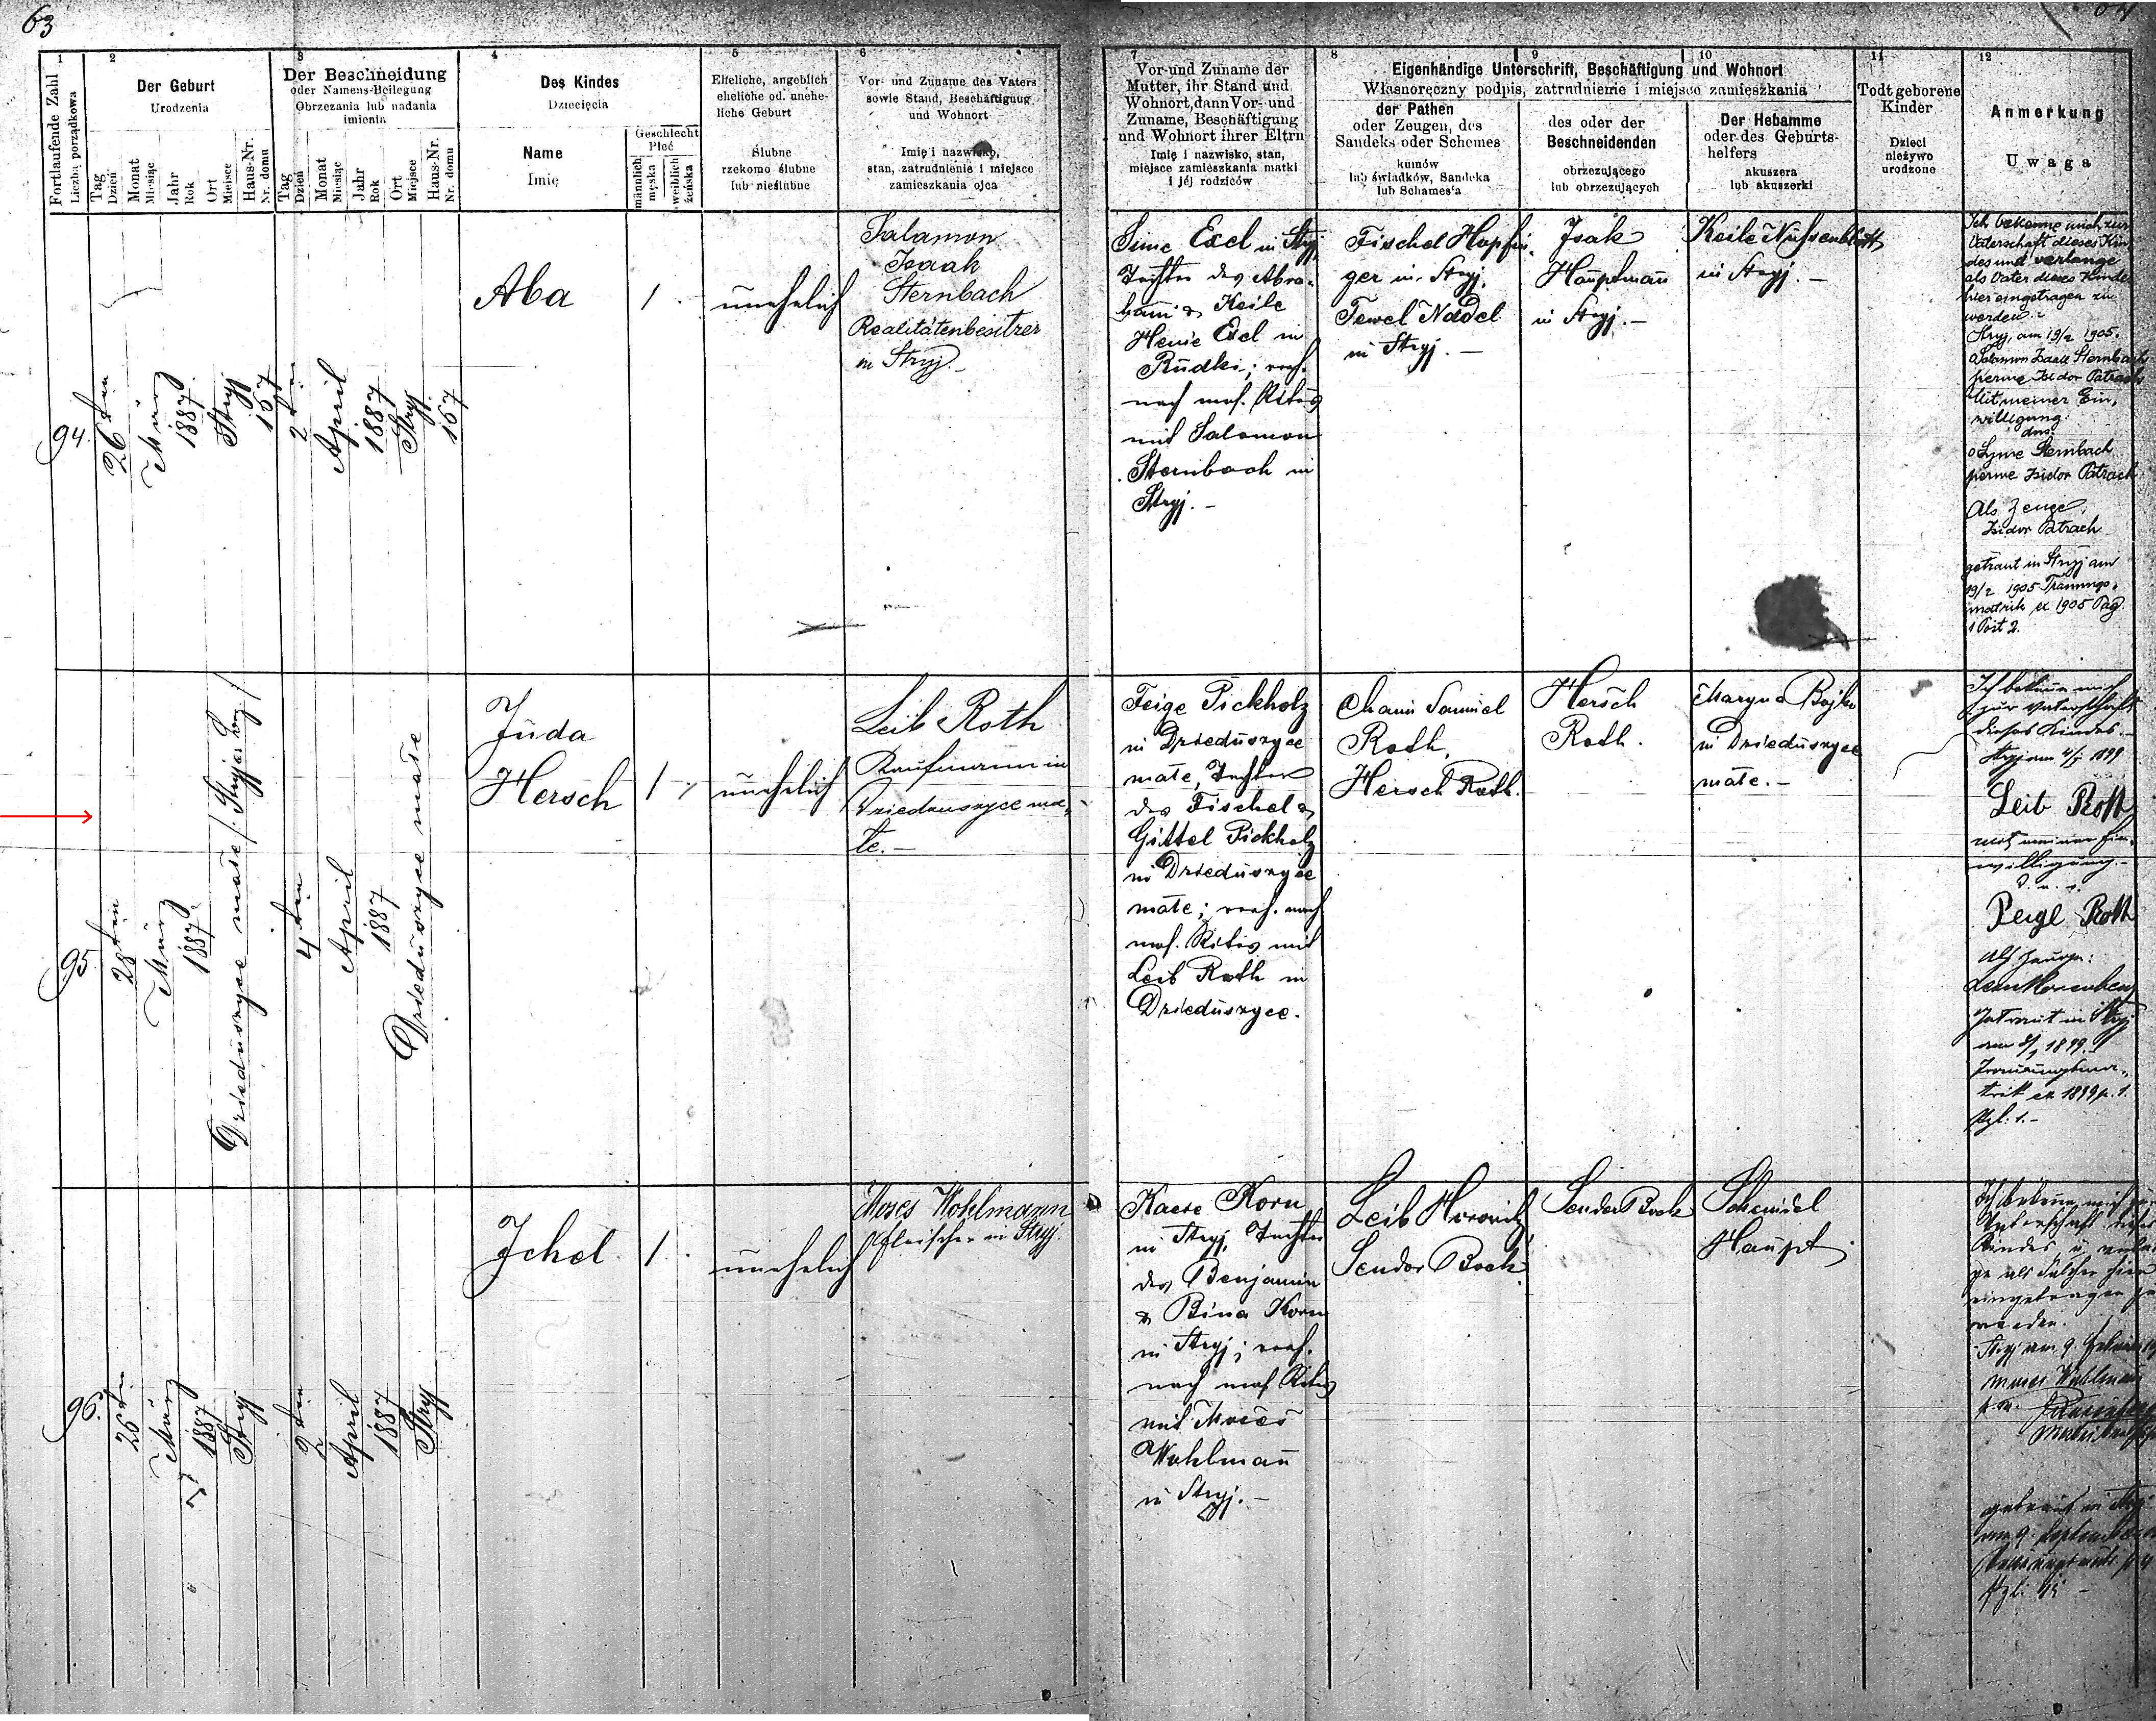 63
1
2
3
4
5
6
Fortlaufende Zahl
Liczba porządkowa
Der Geburt
Urodzenia
Tag
Dzień
Monat
Miesiąc
Jahr
Rok
Ort
Miejsce
Haus-Nr.
Nr. domu
Der Beschneidung
oder Namens-Beilegung
Obrzezania lub nadania
imienia
Tag
Dzień
Monat
Miesiąc
Jahr
Rok
Ort
Miejsce
Haus-Nr.
Nr. domu
Des Kindes
Dziecięcia
Name
Imię
Geschlecht
Płeć
männlich
męska
weiblich
żeńska
Eheliche, angeblich
eheliche od. unehe-
liche Geburt
Ślubne
rzekomo ślubne
lub nieślubne
Vor- und Zuname des Vaters
sowie Stand, Beschäftigung
und Wohnort
Imię i nazwisko,
stan, zatrudnienie i miejsce
zamieszkania ojca
7
8
9
10
11
12
Vor-und Zuname der
Mutter, ihr Stand und
Wohnort, dann Vor- und
Zuname, Beschäftigung
und Wohnort ihrer Eltrn
Imię i nazwisko, stan,
miejsce zamieszkania matki
i jéj rodziców
Eigenhändige Unterschrift, Beschäftigung und Wohnort
Własnoręczny podpis, zatrudnienie i miejsce zamieszkania
der Pathen
oder Zeugen, des
Sandeks oder Schemes
kumów
lub świadków, Sandeka
lub Schames'a
des oder der
Beschneidenden
obrzezującego
lub obrzezujących
Der Hebamme
oder des Geburts-
helfers
akuszera
lub akuszerki
Todt geborene
Kinder
Dzieci
nieżywo
urodzone
Anmerkung
Uwaga
94.
26ten
März
1887
Stryj
167
2ten
April
1887
Stryj
167
Aba
1
unehelich
Salamon
Isaak
Sternbach
Realitätenbesitzer
in Stryj.
Sime Exel in Stryj
Tochter des Abra-
ham & Keile
Henie Exel in
Rudki; verh.
nach mos. Ritus
mit Salamon
Sternbach in
Stryj.-
Fischel Hopfin-
ger in Stryj.
Tewel Nadel
in Stryj.-
Isak
Hauptmann
in Stryj.-
Keile Nussenblatt
in Stryj.-
Ich bekenne mich zur
Vaterschaft dieses Kin-
des und verlange
als Vater dieses Kindes
hier eingetragen zu
werden.
Stryj, am 19/2 1905.
Salamon Isaak Sternbach
perme Isidor Patrach
Mit meiner Ein-
willigung
dns.
Syme Sternbach
perme Isidor Patrach
Als Zeuge
Isidor Patrach
getraut in Stryj am
19/2 1905 Trauungs-
matrik ex 1905 Pag.
1 Post 2.
95.
28ten
März
1887
Dzieduszyce małe / Stryjer Bez /
4ten
April
1887
Dzieduszyce małe
Juda
Hersch
1
unehelich
Leib Roth
Kaufmann in
Dzieduszyce ma-
łe.-
Feige Pickholz
in Dzieduszyce
małe, Tochter
des Fischel &
Gittel Pickholz
in Dzieduszyce
małe; verh. nach
mos. Ritus mit
Leib Roth in
Dzieduszyce.
Chaim Samuel
Roth,
Hersch Roth.
Hersch
Roth.
Maryna Bojko
in Dzieduszyce
małe.-
Ich bekenne mich
zur Vaterschaft
dieses Kindes.-
Stryj am 4/1 1899
Leib Roth
mit meiner Ein-
willigung.-
d. u. s.
Peigl Roth
Als Zeuge:
Getraut in Stryj
am 8/1 1899.
Trauungsma-
trik ex 1899 p. 1.
Pzl. 1.-
96.
26ten
März
1887
Stryj
2ten
April
1887
Stryj
Ichel
1
unehelich
Moses Wohlmann
Fleischer in Stryj.
Korn
in Stryj, Tochter
des Benjamin
& Bina Korn
in Stryj; verh.
nach mos Ritus
mit Moses
Wohlmann
in Stryj.-
Leib Horowitz
Sender Bock
Sender Bock
Scheindel
Haupt
Ich bekenne mich zur
Vaterschaft dieses
Kindes u. verlan-
ge als solcher hier
eingetragen zu
werden.
Stryj am 9.
Moses Wohlmann
getraut in Stryj
am 9. September